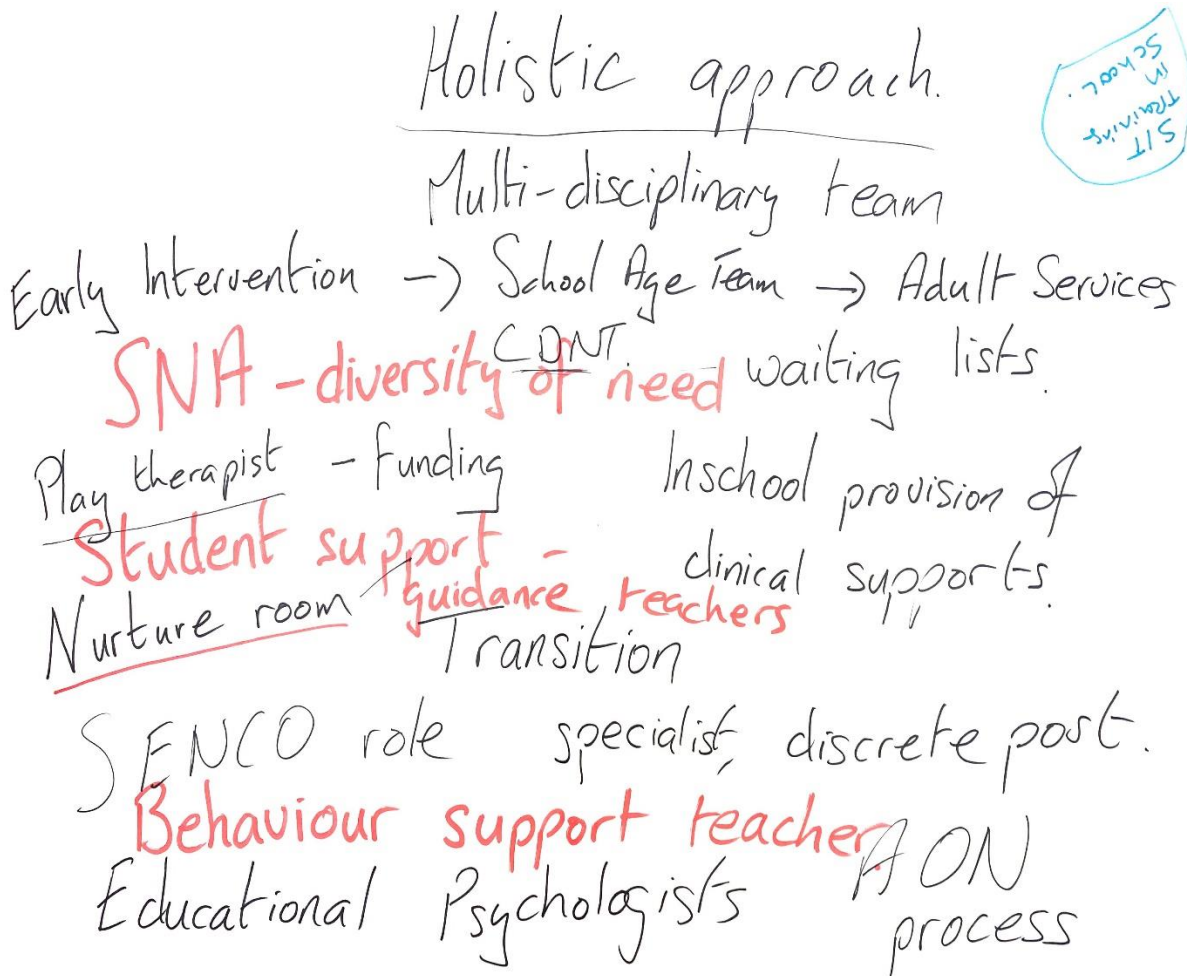 Holistic approach.
S/T
Training
in
School.
Multi-disciplinary team
Early Intervention -> School Age Team -> Adult Services
CDNT.
SNA - diversity of need
waiting lists.
Play therapist - Funding
Inschool provision of
clinical supports.
Student support -
guidance teachers
Nurture room
Transition
SENCO role specialist, discrete post.
Behaviour support teacher.
Educational Psychologists
AON
process